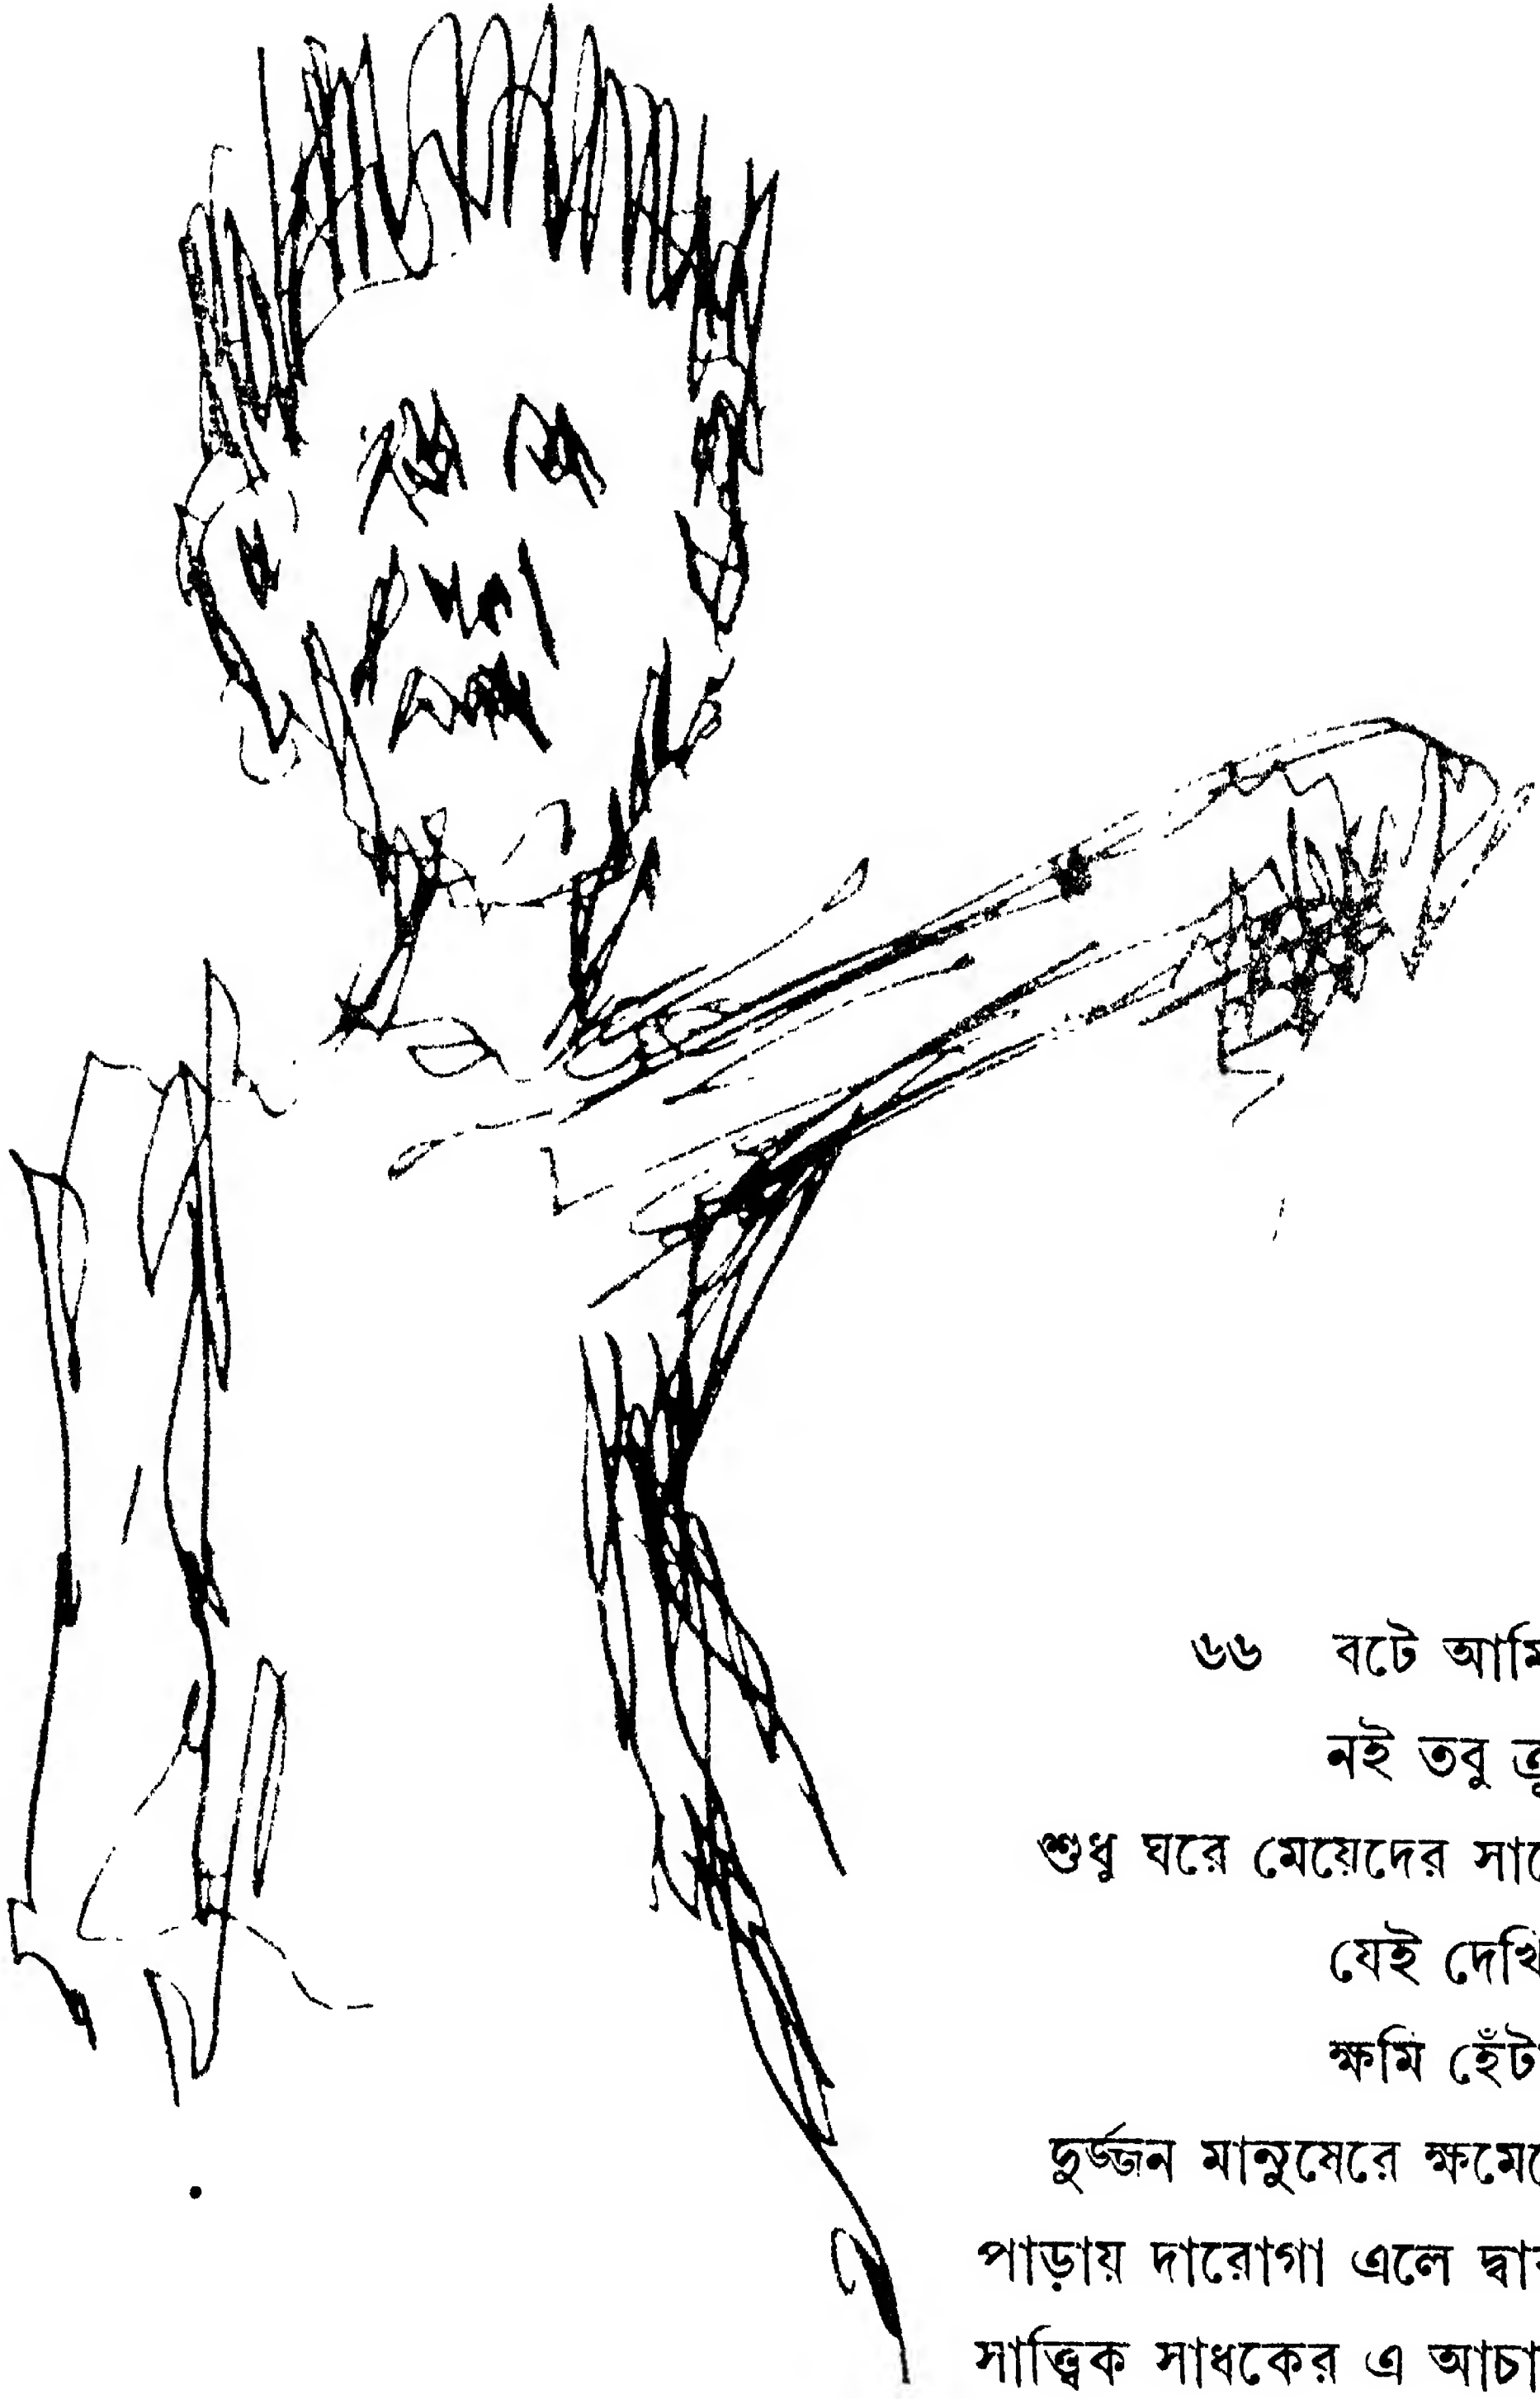 ৬৬ বটে আমি
নই তবু
শুধু ঘরে মেয়েদের
যেই দেখি
ক্ষমি
দুর্জ্জন মানুষেরে
পাড়ায় দারোগা এলে
সাত্ত্বিক সাধকের এ